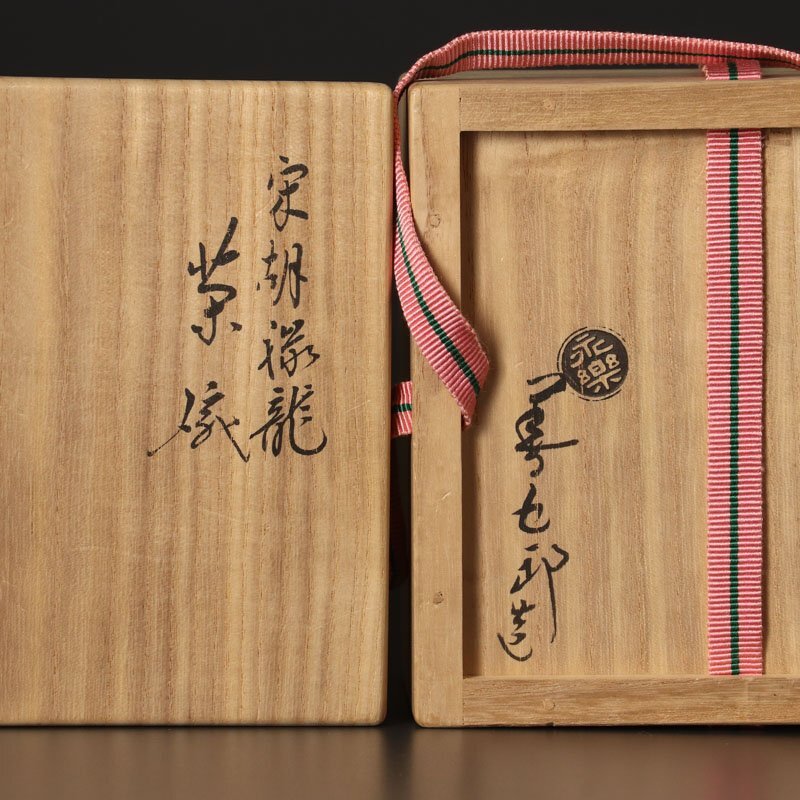 宋胡禄龍
茶碗
永樂
善五郎造